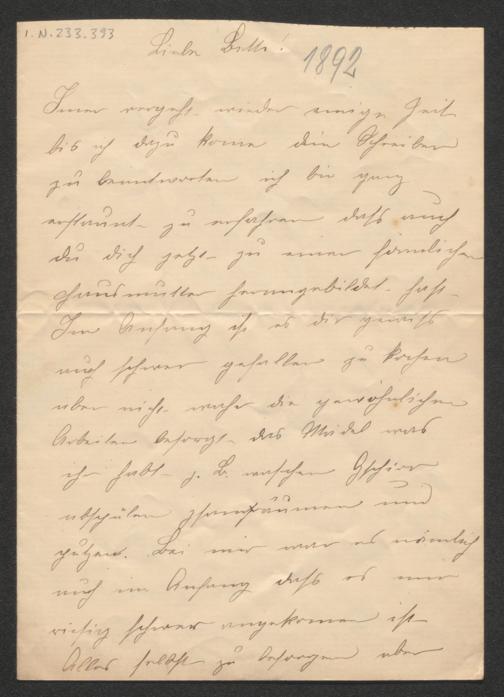 I.N. 233.393
Liebe Betti!
1892
Imer vergeht wieder einige Zeit
bis ich dazu kome dein Schreiben
zu beantworten ich bin ganz
erstaunt zu erfahren daß auch
du dich jetzt zu einer förmlichen
Hausmutter herangebildet hast
Im Anfang ist es dir gewiß
auch schwer gefallen zu kochen
aber nicht wahr die gewöhnlichen
Arbeiten besorgt das Mädel was
ihr habt z. B. waschen Gschirr
abspülen zsamräumen und
putzen. Bei mir war es nämlich
auch im Anfang daß es mir
riesig schwer angekomen ist
Alles selbst zu besorgen aber